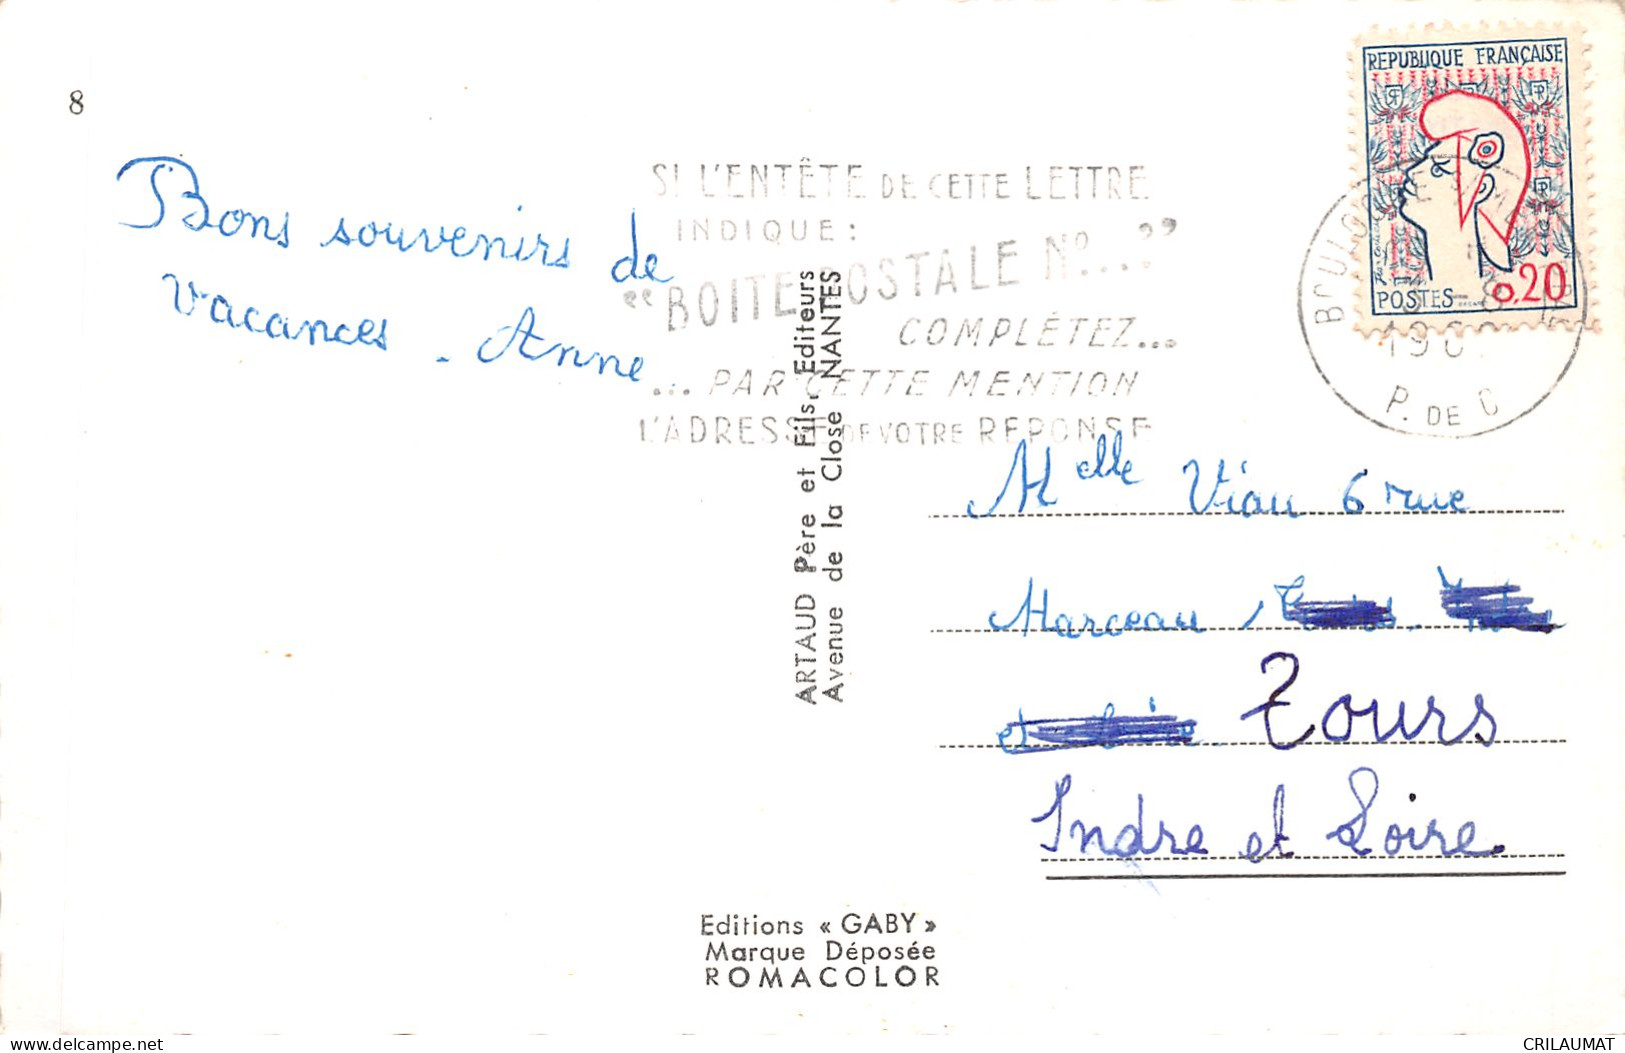 8
REPUBLIQUE FRANÇAISE
POSTES 0.20
SI L'ENTÊTE DE CETTE LETTRE
INDIQUE :
"BOITE POSTALE Nº...?"
COMPLÉTEZ...
... PAR CETTE MENTION
L'ADRESSE DE VOTRE REPONSE
P. DE C
Bons souvenirs de
vacances - Anne
ARTAUD Père et Fils, Editeurs
Avenue de la Close NANTES
Melle Viau 6 rue
Marceau
Tours
Indre et Loire.
Editions « GABY »
Marque Déposée
ROMACOLOR
CRILAUMAT